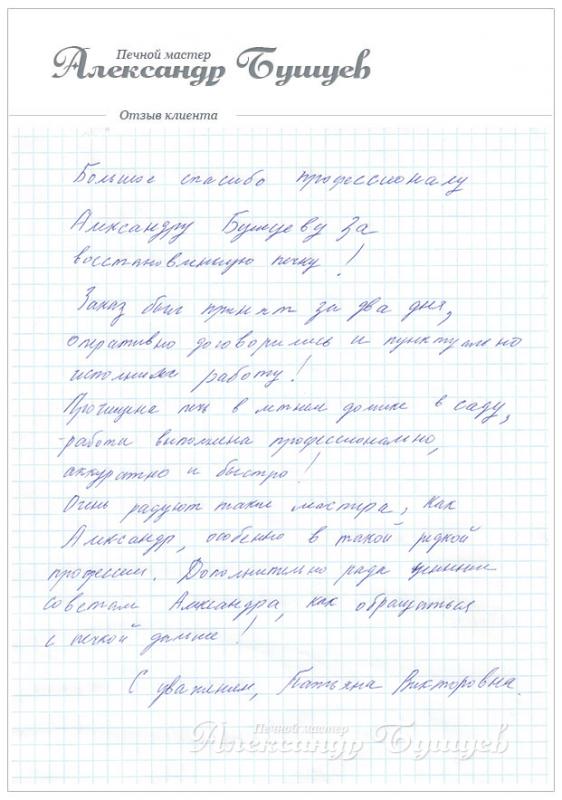 Печной мастер
Александр Бушуев
Отзыв клиента
Большое спасибо профессионалу
Александру Бушуеву за
восстановленную печку!
Заказ был принят за два дня,
оперативно договорились и пунктуально
исполнили работу!
Прочищена печь в летнем домике в саду,
работа выполнена профессионально,
аккуратно и быстро!
Очень радуют такие мастера, как
Александр, особенно в такой редкой
профессии. Дополнительно рада ценным
советам Александра, как обращаться
с печкой дальше!
С уважением, Татьяна Викторовна.
Печной мастер
Александр Бушуев